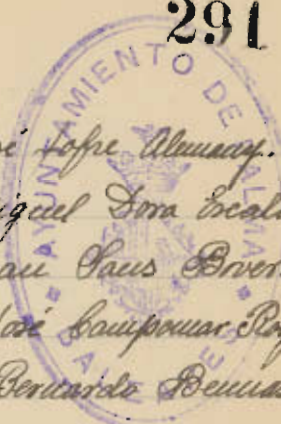 291
AYUNTAMIENTO DE PALMA
BALEARES
é Jofre Alemany.
iguel Dora Escal
au Saus Brver
José Campomar Ro
Bernardo Bennas